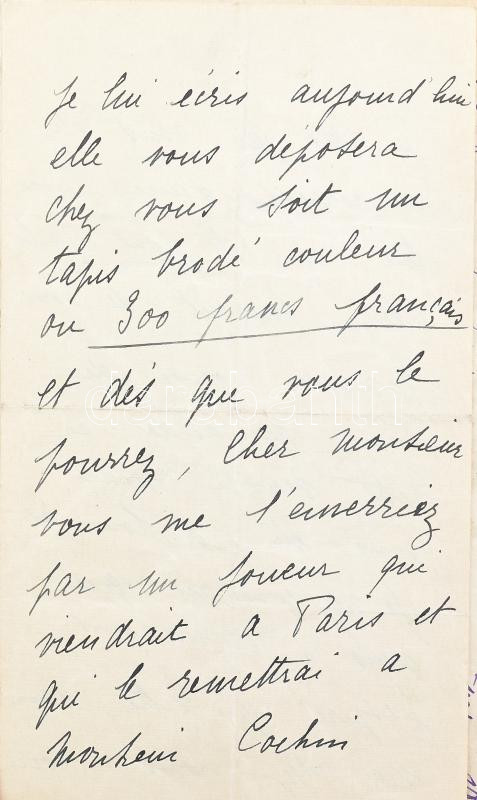 Je lui écris aujourd'hui
elle vous déposera
chez vous soit un
tapis brodé couleur
ou 300 francs français
et dès que vous le
pourrez, Cher Monsieur
vous me l'enverriez
par un joueur qui
viendrait a Paris et
qui le remettrai a
Monsieur Cochin
darabanth